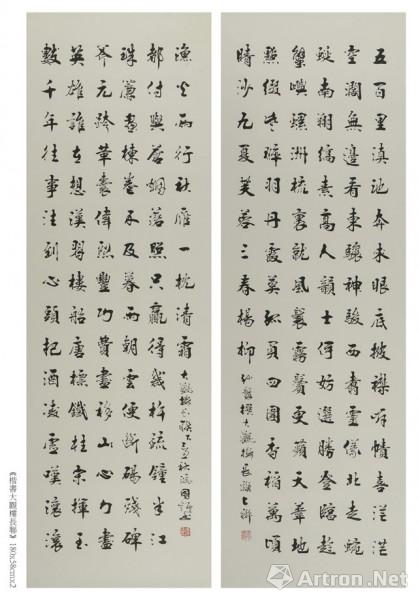 五百里滇池奔來眼底披襟岸幘喜茫茫
空闊無邊看東驤神駿西翥靈儀北走蜿
蜒南翔縞素高人韻士何妨選勝登臨趁
蟹嶼螺洲梳裹就風鬟霧鬢更蘋天葦地
點綴些翠羽丹霞莫孤負四圍香稻萬頃
晴沙九夏芙蓉三春楊柳
孫髯撰大觀樓長聯上聯
數千年往事注到心頭把酒凌虛嘆滾滾
英雄誰在想漢習樓船唐標鐵柱宋揮玉
斧元跨革囊偉烈豐功費盡移山心力盡
珠簾畫棟卷不及暮雨朝雲便斷碣殘碑
都付與蒼煙落照只贏得幾杵疏鐘半江
漁火兩行秋雁一枕清霜
大觀樓長聯下
《楷書大觀樓長聯》180x58cmx2
Artron.Net